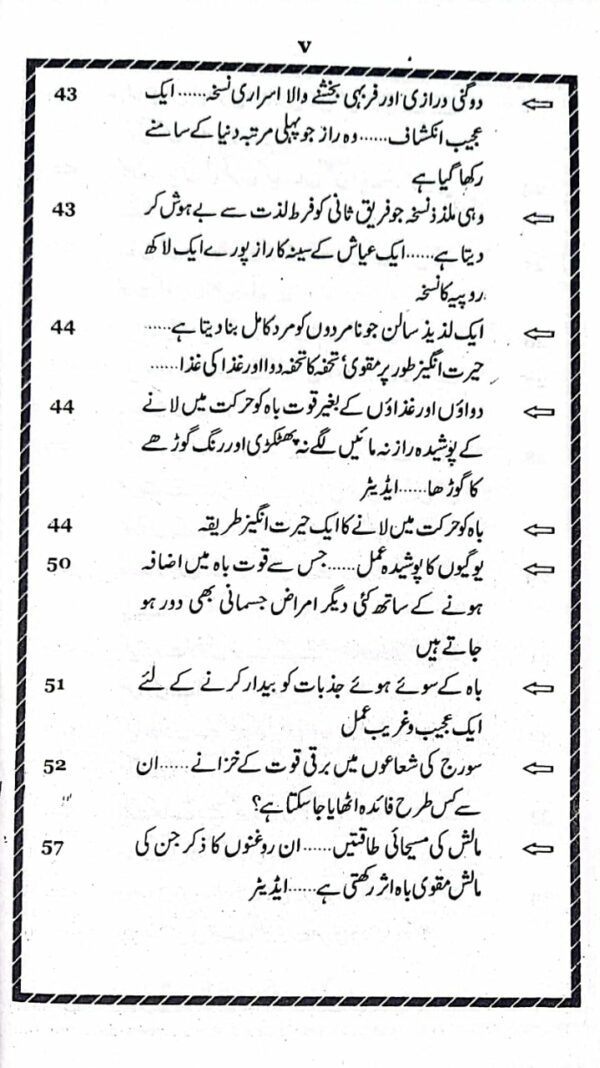 ۷
دوگنی درازی اور فربہی بخشنے والا اسراری نسخہ......ایک 43
عجیب انکشاف......وہ راز جو پہلی مرتبہ دنیا کے سامنے
رکھا گیا ہے
وہی ملذذ نسخہ جو فریق ثانی کو فرط لذت سے بے ہوش کر 43
دیتا ہے......ایک عیاش کے سینہ کا راز پورے ایک لاکھ
روپیہ کا نسخہ
ایک لذیذ سالن جو نامردوں کو مرد کامل بنا دیتا ہے...... 44
حیرت انگیز طور پر مقوی، تحفہ کا تحفہ دوا اور غذا کی غذا......
دواؤں اور غذاؤں کے بغیر قوت باہ کو حرکت میں لانے 44
کے پوشیدہ راز نہ مائیں لگے نہ پھٹکڑی اور رنگ گوڑھے
کا گوڑھا......ایڈیٹر
باہ کو حرکت میں لانے کا ایک حیرت انگیز طریقہ 44
یوگیوں کا پوشیدہ عمل......جس سے قوت باہ میں اضافہ 50
ہونے کے ساتھ کئی دیگر امراض جسمانی بھی دور ہو
جاتے ہیں
باہ کے سوئے ہوئے جذبات کو بیدار کرنے کے لئے 51
ایک عجیب و غریب عمل
سورج کی شعاعوں میں برقی قوت کے خزانے......ان 52
سے کس طرح فائدہ اٹھایا جا سکتا ہے؟
مالش کی مسیحائی طاقتیں......ان روغنوں کا ذکر جن کی 57
مالش مقوی باہ اثر رکھتی ہے......ایڈیٹر